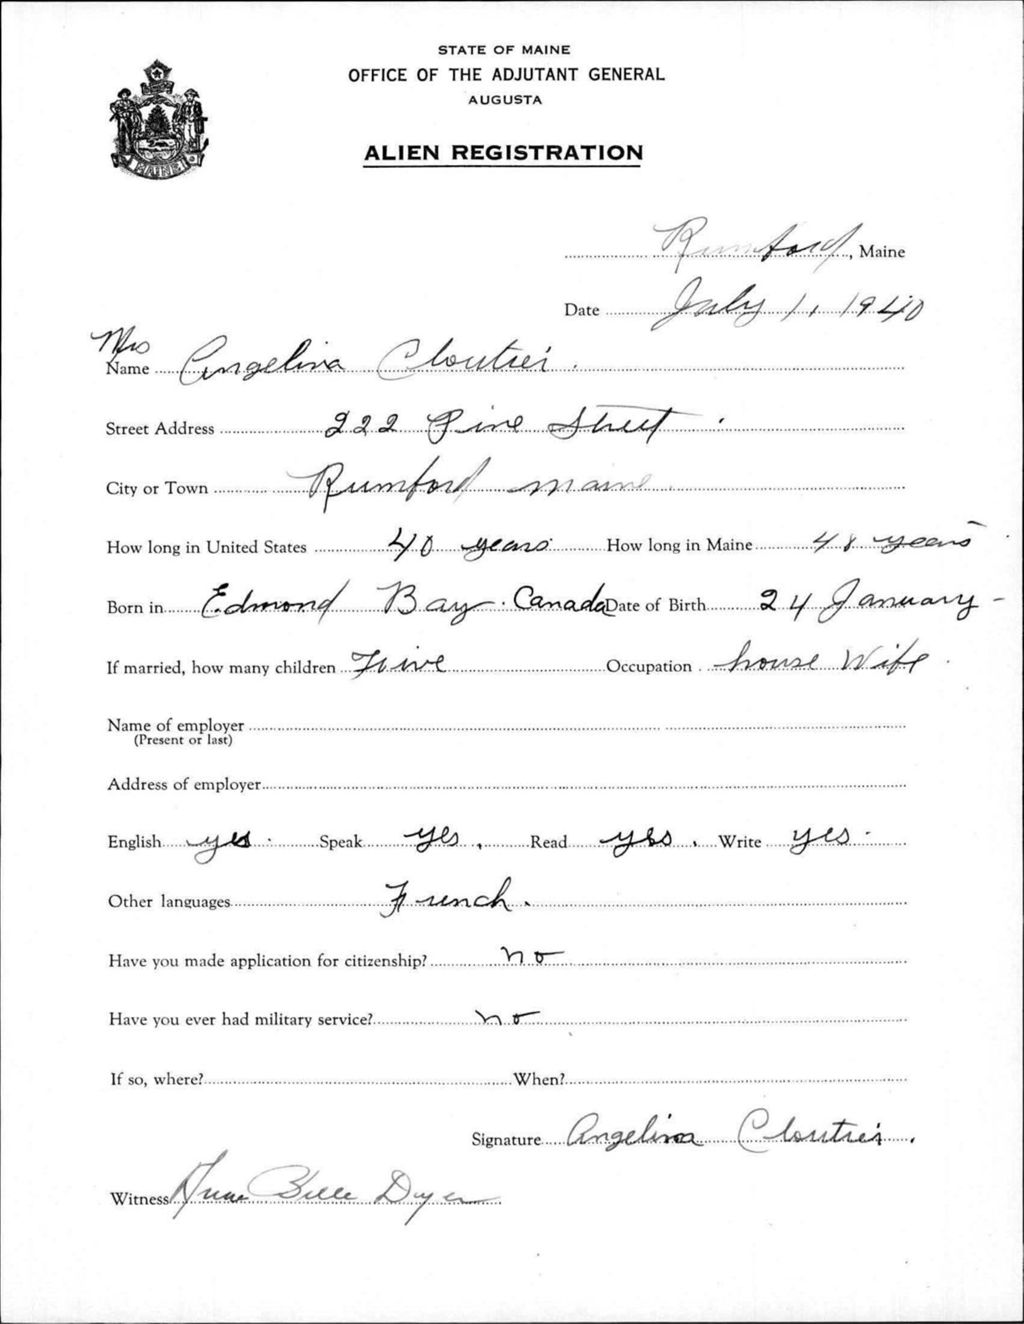 STATE OF MAINE
OFFICE OF THE ADJUTANT GENERAL
AUGUSTA
ALIEN REGISTRATION
MAINE
Rumford, Maine
Date July 1, 1940
Mrs
Name Angelina Cloutier
Street Address 222 Pine Street
City or Town Rumford Maine
How long in United States 40 years How long in Maine 48 years
Born in Edmond Bay Canada Date of Birth 24 January
If married, how many children Five Occupation house Wife
Name of employer
(Present or last)
Address of employer
English yes Speak yes, Read yes, Write yes
Other languages French.
Have you made application for citizenship? no
Have you ever had military service? no
If so, where? When?
Signature Angelina Cloutier.
Witness Belle Dyer